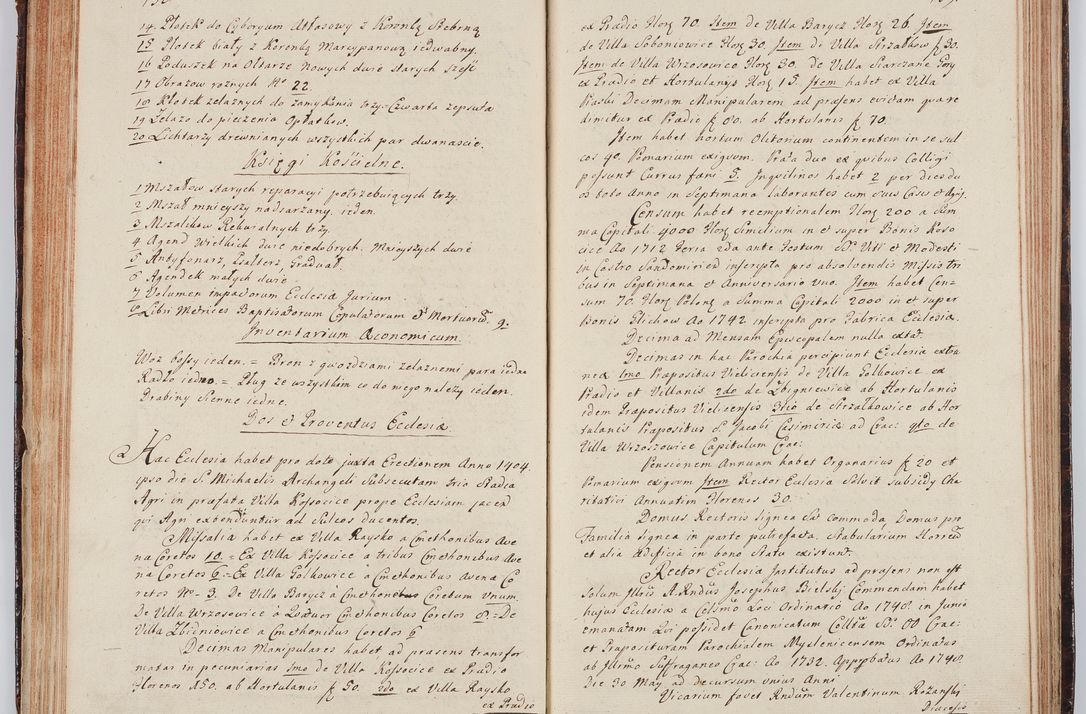 14. Płotek do Cyboryum Atłasowy z Koronką Srebrną
15 Płotek biały z Koronką Marcypanową iedwabny.
16 Poduszek na Ołtarze nowych dwie starych sześć
17 Obrazow roznych No 22.
18 Kłotek żelaznych do zamykania trzy. Czwarta zepsuta
19 Żelazo do pieczenia Opłatkow.
20 Lichtarzy drewnianych wszystkich par dwanascie.
Księgi Kościelne.
1 Mszałow starych reparacyi potrzebuiących trzy.
2 Mszał mnieyszy nadsarzany. ieden.
3 Mszalikow Rekwialnych trzy.
4 Agend Wielkich dwie niedobrych. Mnieyszych dwie
5 Antyfonarz, Psałterz, Graduał.
6 Agendek małych dwie
7 Volumen impactorum Ecclesiæ Jurium
8 Libri Metrices Baptisatorum Copulatorum et Mortuorum 9.
Inventarium Œconomicum.
Woz bossy ieden. = Bron z gwozdziami zelaznemi para iedna
Radło iedno. = Pług ze wszystkim co do niego należy ieden.
Drabiny Sienne iedne.
Dos et Proventus Ecclesiæ.
Hæc Ecclesia habet pro dote juxta Erectionem Anno 1404.
ipso die S. Michaelis Archangeli Subsecutam tria Stadia
Agri in præfata Villa Kossocice prope Ecclesiam jacen
qui Agri extenduntur ad Sulcos ducentos.
Missalia habet ex Villa Raysko a Cmethonibus Ave
na Coretos 10. = Ex Villa Kossocice a tribus Cmethonibus Ave
na Coretos 6 = Ex Villa Golkowice a Cmethonibus Avena Co
retos No 3. De Villa Barycz à Cmethonibus Coretum Unum.
De Villa Wrzosowice à Quatuor Cmethonibus Coretos 8. = De
Villa Zbidniowice a Cmethonibus Coretos 6
Decimas Manipulares habet ad præsens transfor
matas in pecuniarias 1mo de Villa Kossocice ex Prædio
Florenos 150. ab Hortulanis f 50. 2do ex Villa Raysko
ex Prædio
ex Prædio Flor 70. Item de Villa Barycz Flor 26. Item
de Villa Soboniowice Flor 30. Item de Villa Strzałkow f 30.
Item de Villa Wrzosowice Flor 30. de Villa Siarczane Gory
ex Prædio et Hortulanijs Flor 15. Item habet ex Villa
Piaski Decimam Manipularem ad præsens evictam quare
dimitur ex Prædio f 80. ab Hortulanis f 70.
Item habet hortum Olitorium continentem in se sul
cos 40. Pomarium exiguum. Prata duo ex quibus Colligi
possunt Currus fæni 5. Inquilinos habet 2 per dies du
os toto Anno in Septimana laborantes cum suis Casis et Agris.
Censum habet reemptionalem Flor 200 a Sum
ma Capitali 4000 Flor Similium in et super Bonis Koso
cice Ao 1712 Feria 2da ante Festum SS. Viti et Modesti
in Castro Sandomirien inscripta pro absolvendis Missis tri
bus in Septimana et Anniversario uno. Item habet Cen-
sum 70. Flor Polon a Summa Capitali 2000 in et super
Bonis Slichow Ao 1742 inscripta pro Fabrica Ecclesiæ.
Decima ad Mensam Episcopalem nulla extat.
Decimas in hac Parochia percipiunt Ecclesiæ extra
neæ 1mo Præpositus Vielicensis de Villa Golkowice ex
Prædio et Villanis 2do de Zbigniewice ab Hortulanis
idem Præpositus Vielicensis 3tio de Strzałkowice ab Hor
tulanis Præpositus S. Jacobi Casimiriæ ad Crac: 4to de
Villa Wrzoszowice Capitulum Crac:
Pensionem Annuam habet Organarius f 20 et
Pomarium exiguum Item Rector Ecclesiæ Solvit subsidij Cha
ritativi Annuatim Florenos 30.
Domus Rectoris lignea Sat commoda Domus pro
Familia lignea in parte putrefacta. Stabularium Horreum
et alia Ædificia in bono Statu existunt.
Rector Ecclesiæ Institutus ad præsens non est
Solum Illris A.Rndus Josephus Bielski Commendam habet
hujus Ecclesiæ a Celsmo Loci Ordinario Ao 1748. in Junio
emanatam Qui possidet Canonicatum Collta SS. OO Crac:
et Præposituram Parochialem Myslenicensem Ordinatus
ab Illrmo Suffraganeo Crac: Ao 1732. Approbatus Ao 1748.
Die 30 May ad decursum unius Anni
Vicarium fovet Rndum Valentinum Rożanski
Diæcesis